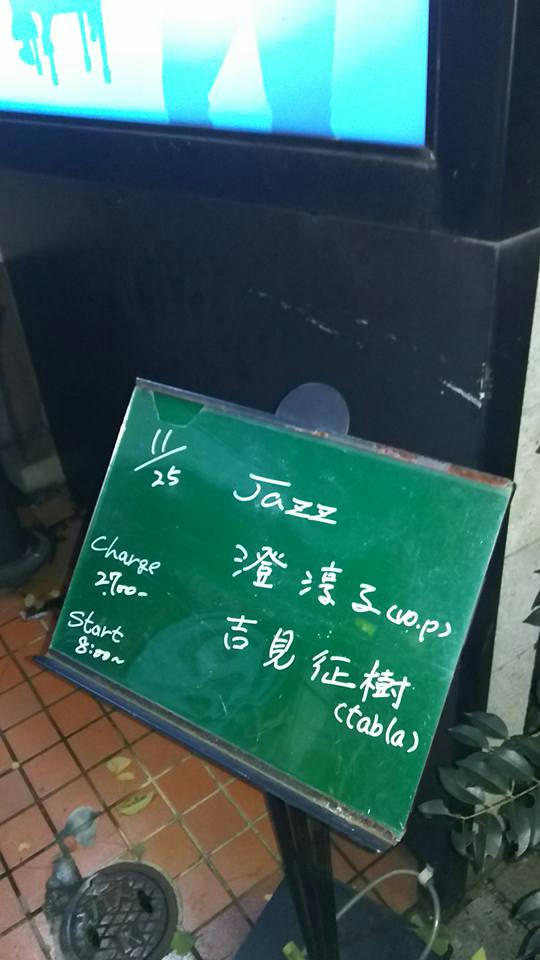 11/25
Jazz
Charge
2,700-
Start
8:00~
澄 淳子(vo.p)
吉見 征樹
(tabla)